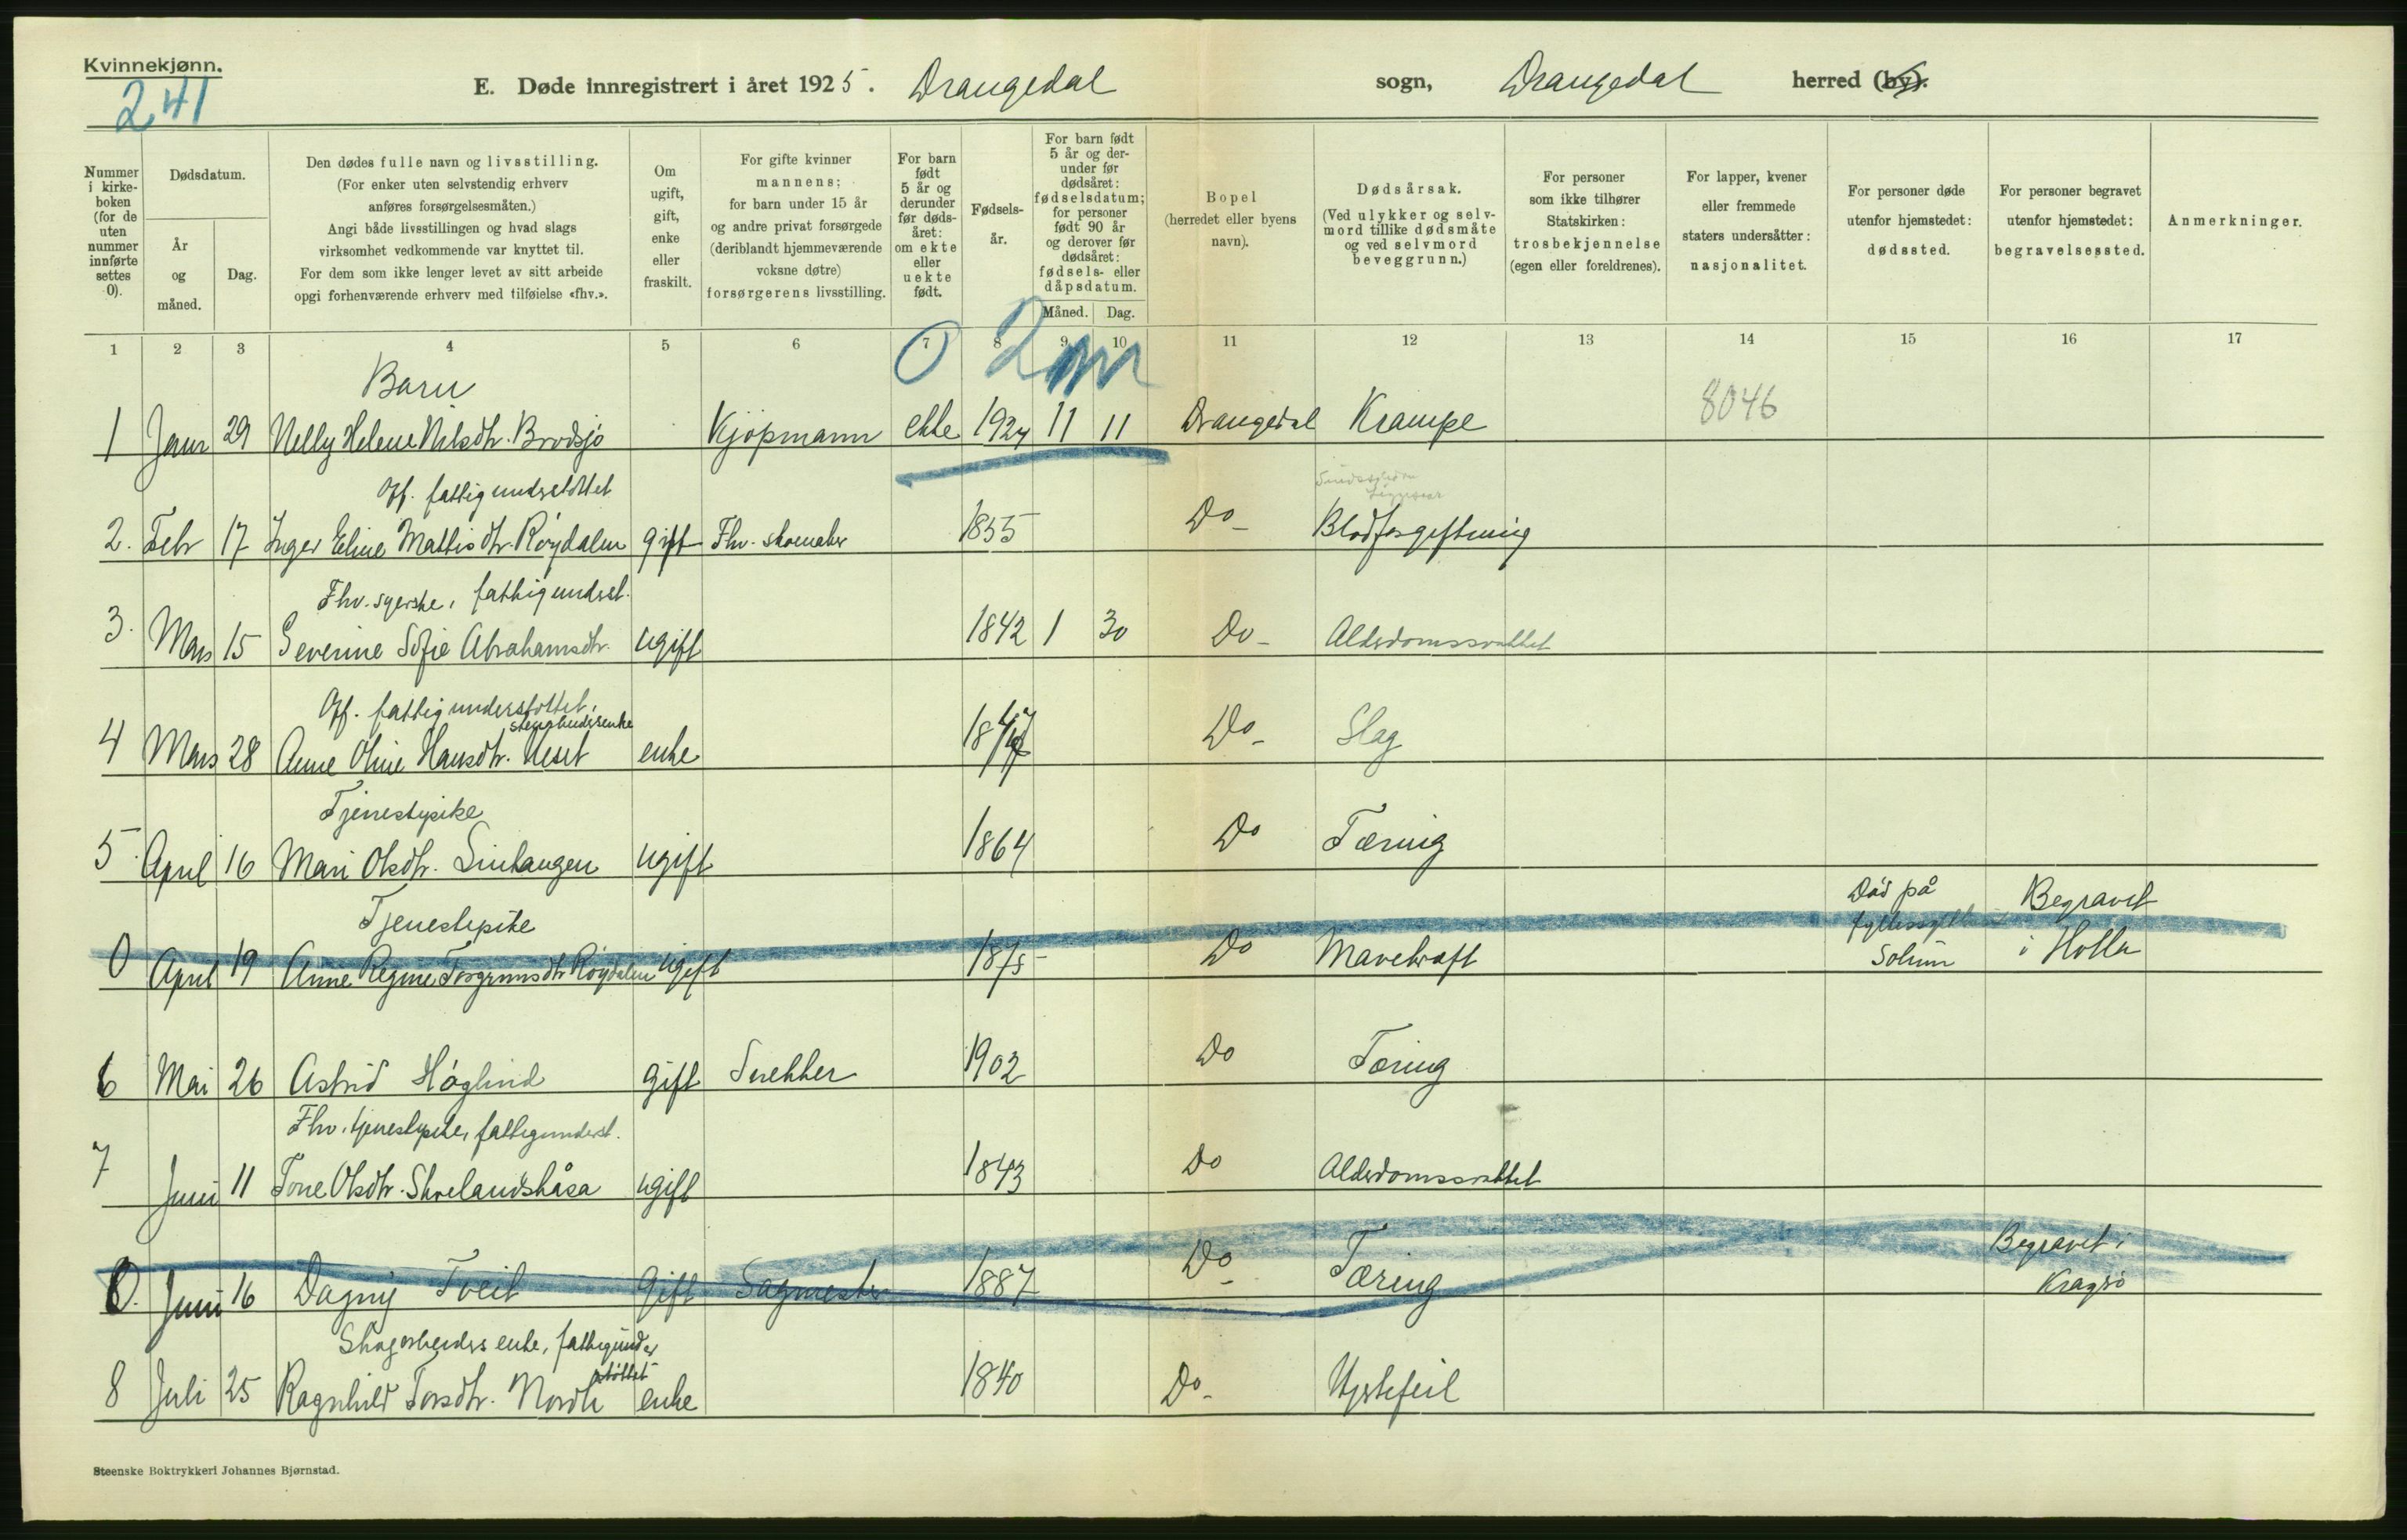 Kvinnekjønn.
241
E. Døde innregistrert i året 1925. Drangedal sogn, Drangedal herred (by).
Nummer i kirkeboken (for de uten nummer innførte settes 0).
Dødsdatum.
År og måned.
Dag.
Den dødes fulle navn og livsstilling.
(For enker uten selvstendig erhverv
anføres forsørgelsesmåten.)
Angi både livsstillingen og hvad slags
virksomhet vedkommende var knyttet til.
For dem som ikke lenger levet av sitt arbeide
opgi forhenværende erhverv med tilføielse «fhv.».
Om ugift, gift, enke eller fraskilt.
For gifte kvinner
mannens;
for barn under 15 år
og andre privat forsørgede
(deriblandt hjemmeværende
voksne døtre)
forsørgerens livsstilling.
For barn født 5 år og derunder før dødsåret: om ekte eller uekte født.
Fødselsår.
For barn født 5 år og derunder før dødsåret: fødselsdatum; for personer født 90 år og derover før dødsåret: fødsels- eller dåpsdatum.
Måned. Dag.
Bopel
(herredet eller byens
navn).
Dødsårsak.
(Ved ulykker og selvmord tillike dødsmåte
og ved selvmord
beveggrunn.)
For personer
som ikke tilhører
Statskirken:
trosbekjennelse
(egen eller foreldrenes).
For lapper, kvener
eller fremmede
staters undersåtter:
nasjonalitet.
For personer døde
utenfor hjemstedet:
dødssted.
For personer begravet
utenfor hjemstedet:
begravelsessted.
Anmerkninger.
1 2 3 4 5 6 7 8 9 10 11 12 13 14 15 16 17
0 2
Barn
8046
1 Janr 29 Nelly Helene Nilsdtr. Brødsjø Kjøpmann ekte 1924 11 11 Drangedal Krampe
Off. fattigunderstøttet
2. Febr 17 Inger Eline Mattisdtr. Røydalen gift Fhv. skomaker 1855 Do- Blodforgiftning
Fhv. syerske, fattigundst.
3. Mars 15 Severine Sofie Abrahamsdtr. ugift 1842 1 30 Do- Alderdomssvakhet
Off. fattigunderstøttet,
4 Mars 28 Anne Oline Hansdtr. Neset enke 1847 Do- Slag
Tjenestepike
5. April 16 Mari Olsdtr. Linhaugen ugift 1864 Do Tæring
Tjenestepike
Død på Begravet
0 April 19 Anne Regine Torgrimsdtr Røydalen ugift 1875 Do Mavekræft
Solum i Holla
6 Mai 26 Astrid Høglind gift Snekker 1902 Do Tæring
Fhv. tjenestepike, fattigunderst.
7 Juni 11 Tone Olsdtr. Skoelandshåsa ugift 1843 Do Alderdomssvakhet
0. Juni 16 Dagny Tveit Gift Sagmester 1887 Do- Tæring Begravet i
Kragerø
Skogarbeiders enke, fattigunder
støttet
8 Juli 25 Ragnhild Torsdtr. Nordli enke 1840 Do- Hjertefeil
Steenske Boktrykkeri Johannes Bjørnstad.